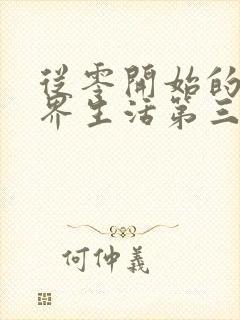 從零開始的
界生活第三
何仲義